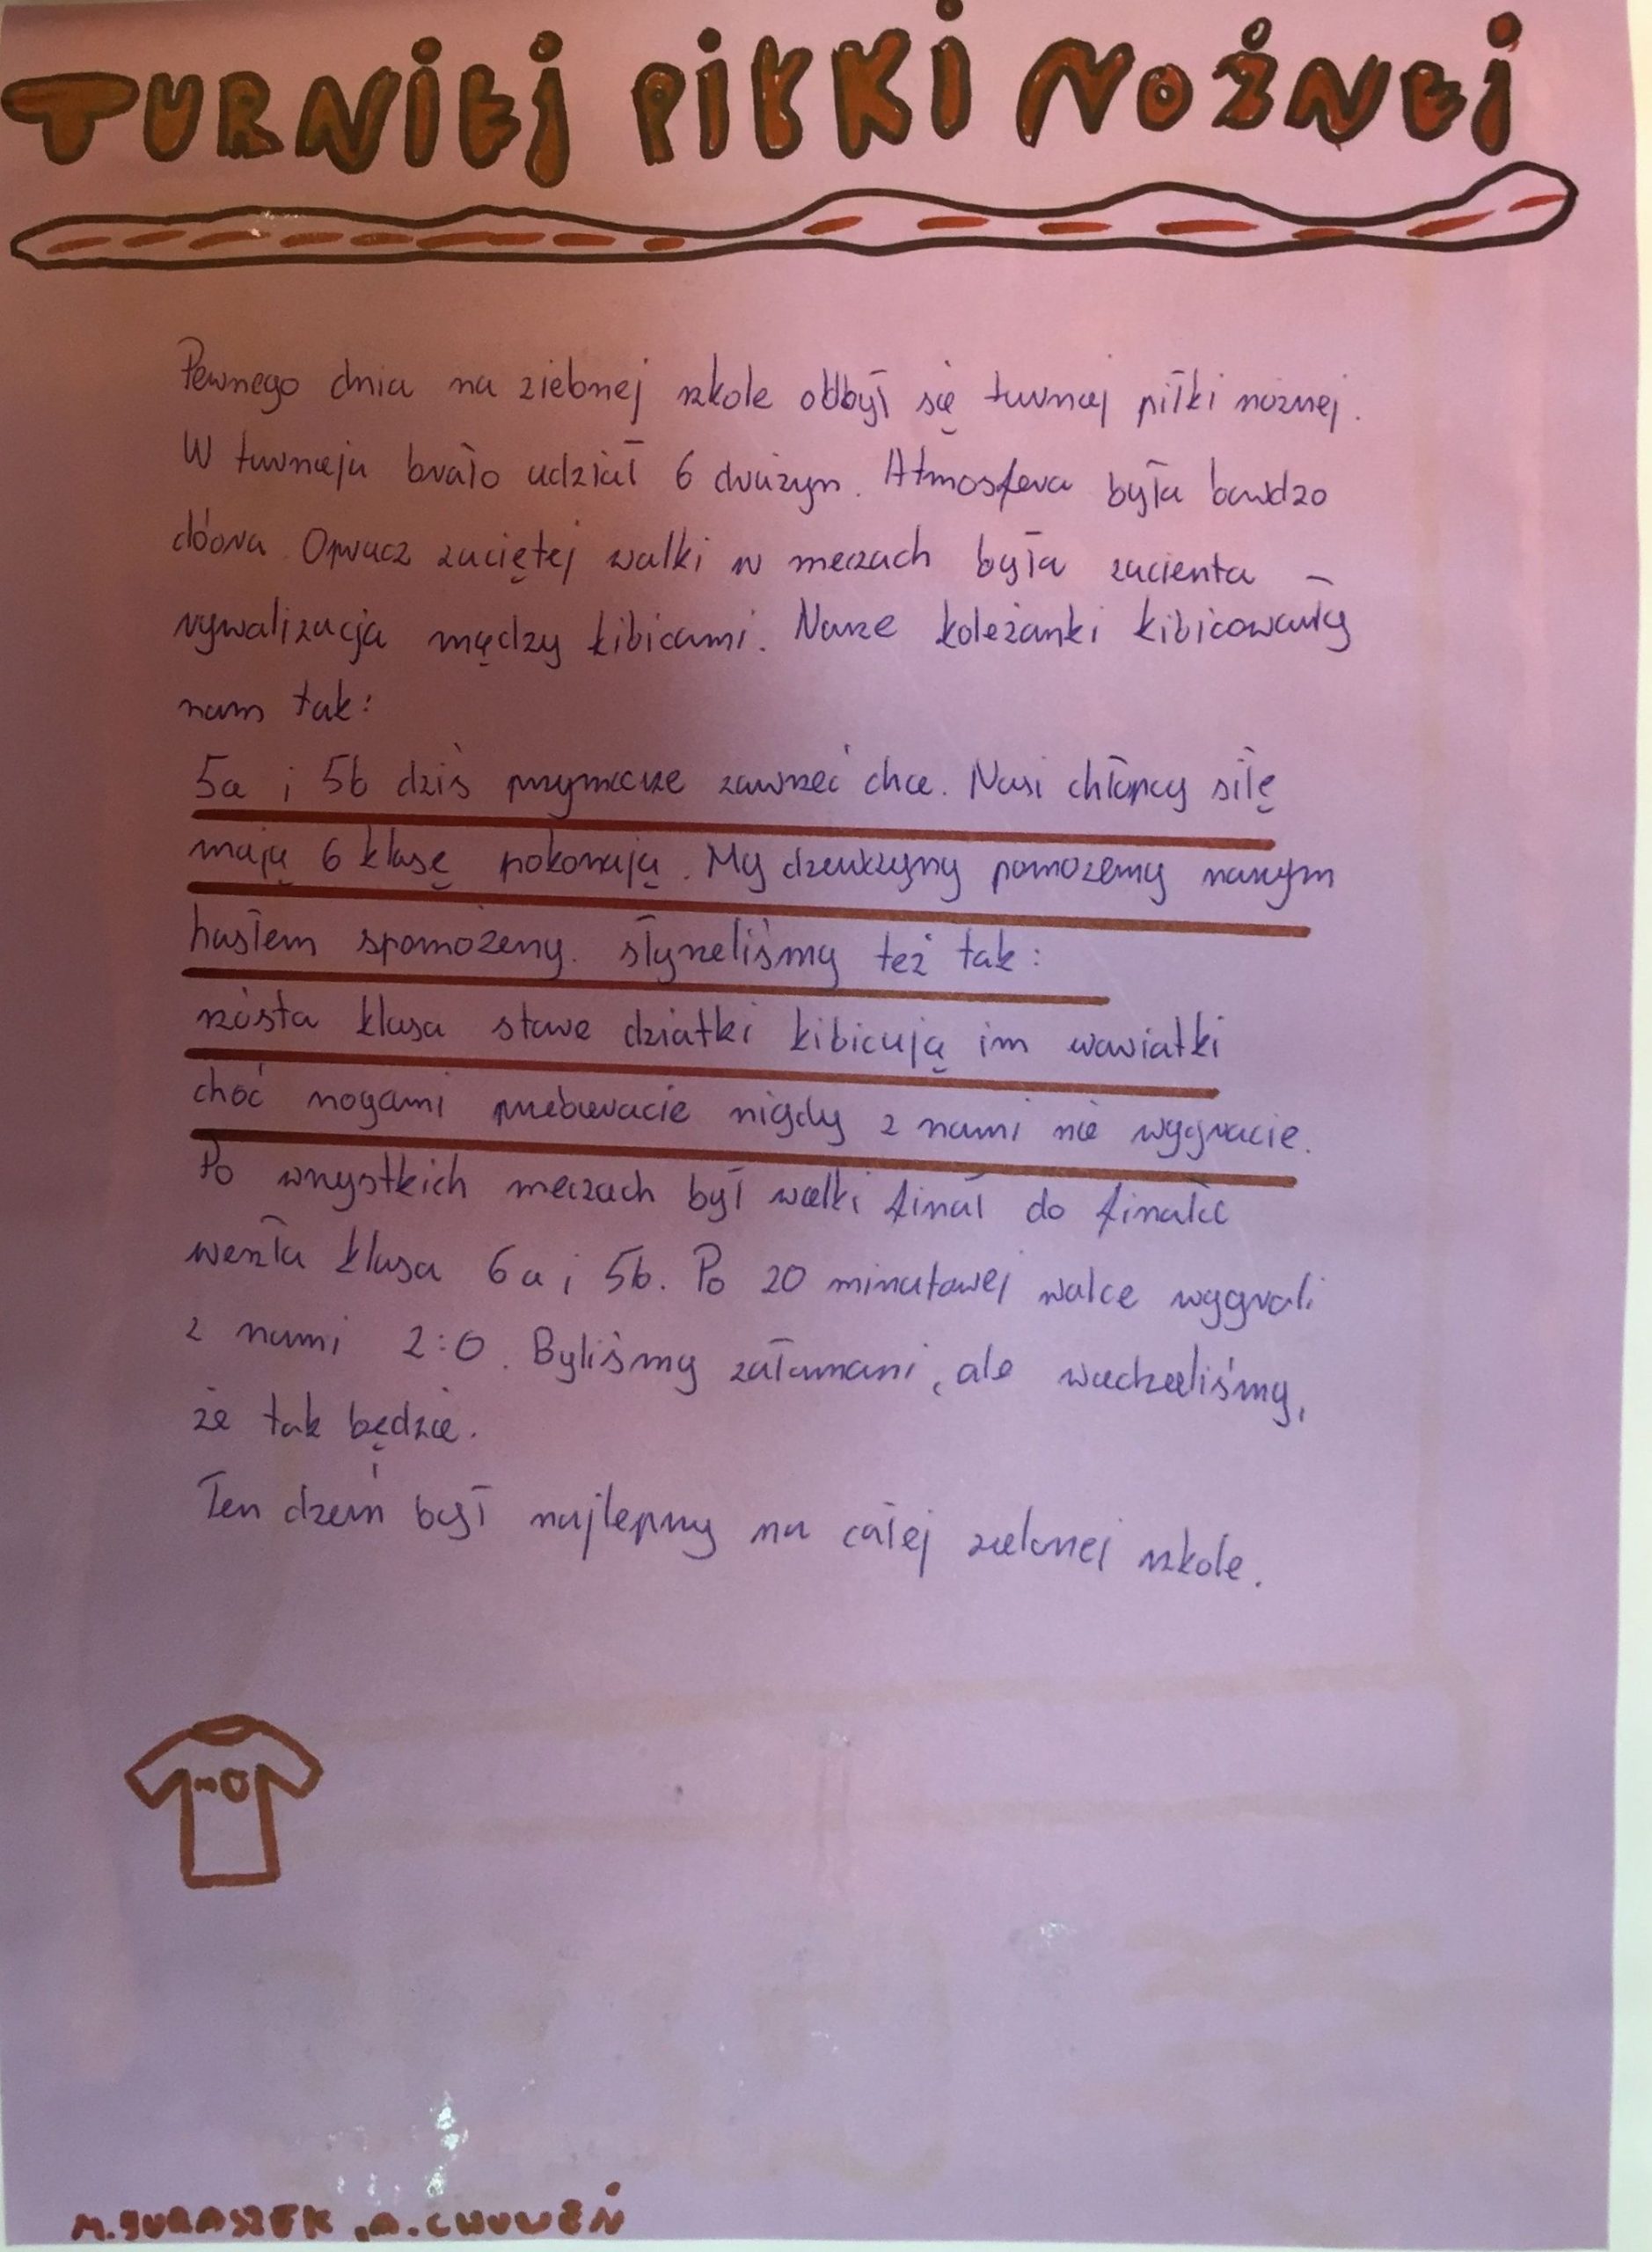 TURNIEJ PIŁKI NOŻNEJ
Pewnego dnia na zielonej szkole odbył się turniej piłki nożnej.
W turnieju brało udział 6 drużyn. Atmosfera była bardzo
dobra. Oprucz zaciętej walki w meczach była zacienta
rywalizacja między kibicami. Nasze koleżanki kibicowały
nam tak:
5a i 5b dziś przymierze zawrzeć chce. Nasi chłopcy siłę
mają 6 klasę pokonają. My dziewczyny pomożemy naszym
hasłem spomożemy. słyszeliśmy też tak:
szósta klasa stare dziatki kibicują im wariatki
choć nogami przebieracie nigdy z nami nie wygracie.
Po wszystkich meczach był wielki finał do finału
weszła klasa 6a i 5b. Po 20 minutowej walce wygrali
z nami 2:0. Byliśmy załamani, ale wiedzieliśmy,
że tak będzie.
Ten dzień był najlepszy na całej zielonej szkole.
M. JURASZEK, A.